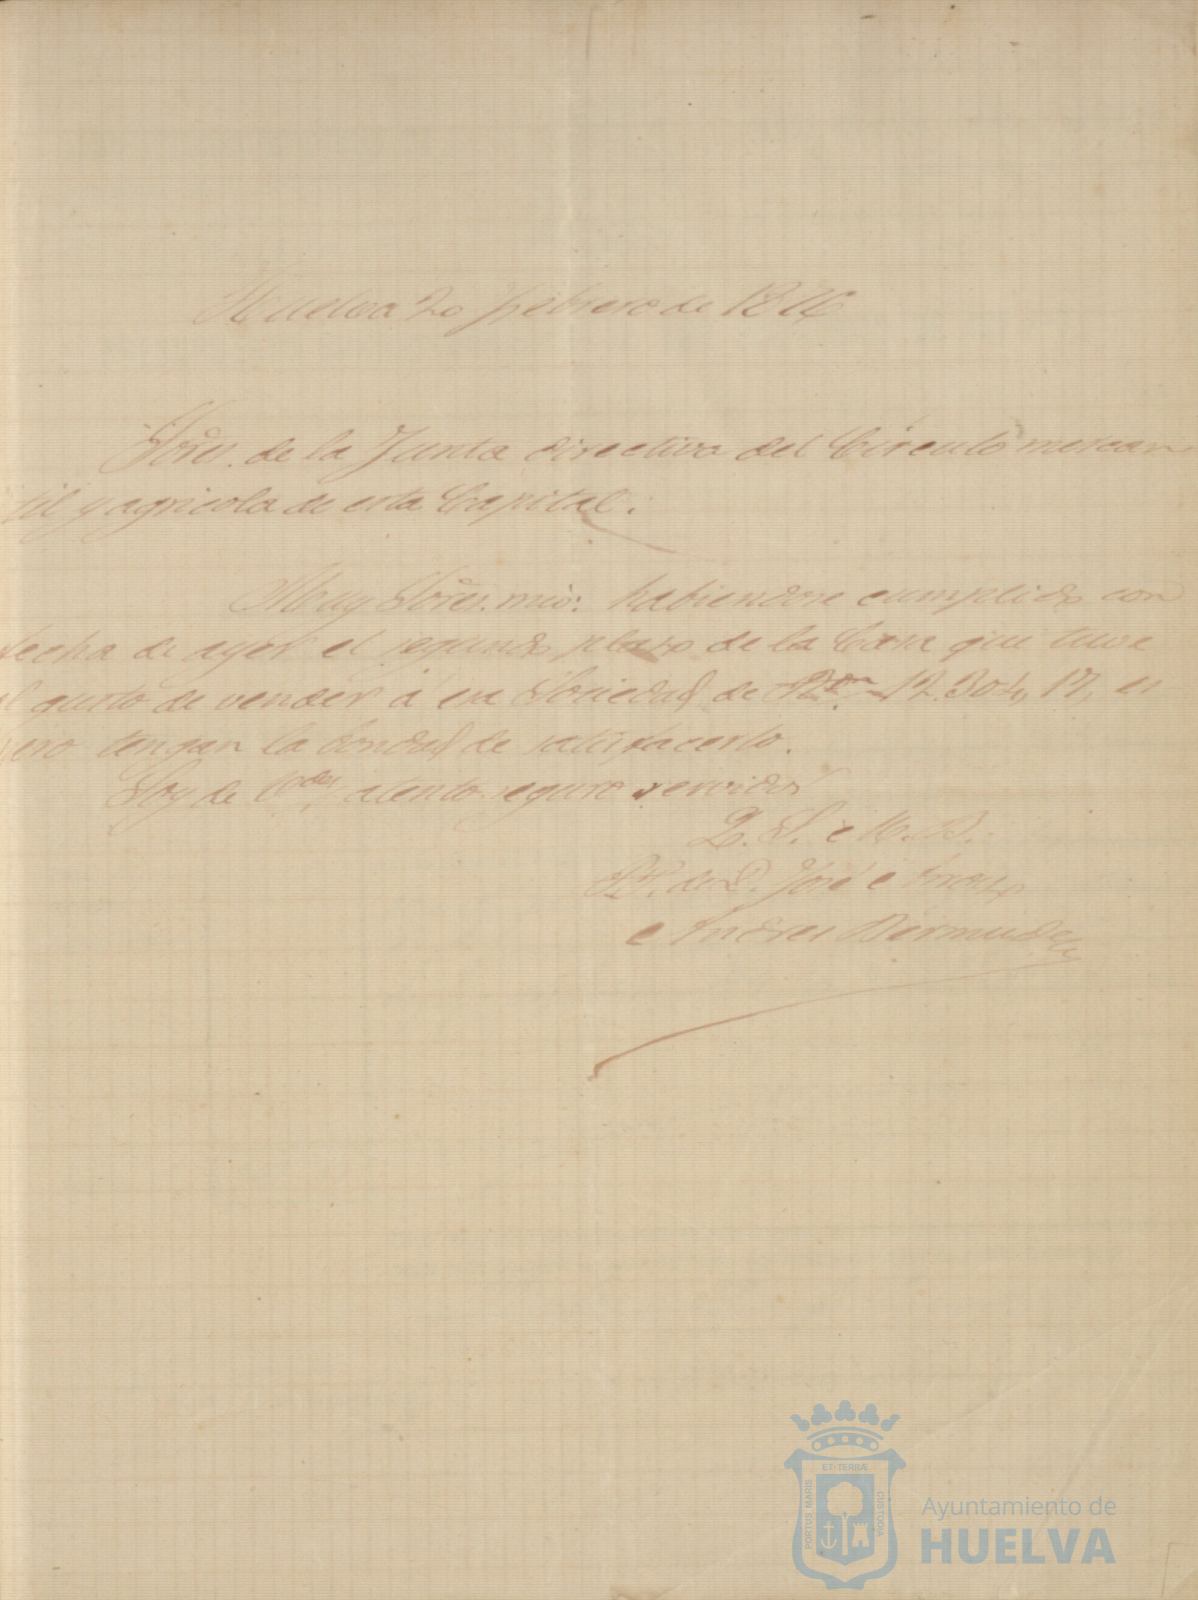 Huelva 20 febrero de 1876
Sores. de la Junta directiva del Círculo mercan
til y agricola de esta Capital.
Muy Sores. mios: habiendose cumplido con
fecha de ayer el segundo plazo de la Casa que tuve
el gusto de vender á esa Sociedad de Rvon 12.304,17, es
pero tengan la bondad de satisfacerlo.
Soy de Vdes. atento seguro servidor
Q. S. M. B.
P. de D. José
Andres Bermudez
ET·TERRÆ
PORTUS MARIS
CUSTODIA
Ayuntamiento de
HUELVA